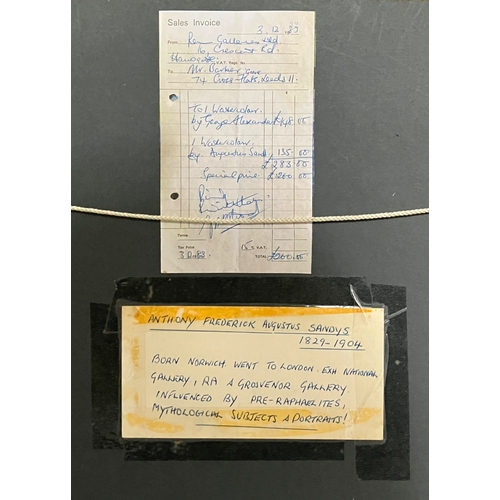 Sales Invoice
3.12.83
From
Galleries Ltd
Crescent Rd.
V.A.T. Regd. No.
To Mr. Barker
74 Cross Flats, Leeds 11.
To 1 Watercolour
by George Alexander £148 00
1 Watercolour
by Augustus Sandys 135 00
£283 00
Special price £200 00
Terms
Tax Point
3.12.83
15% V.A.T.
TOTAL £200.00
ANTHONY FREDERICK AUGUSTUS SANDYS
1829-1904
BORN NORWICH WENT TO LONDON. EXH NATIONAL
GALLERY, RA & GROSVENOR GALLERY
INFLUENCED BY PRE-RAPHAELITES,
MYTHOLOGICAL SUBJECTS & PORTRAITS!